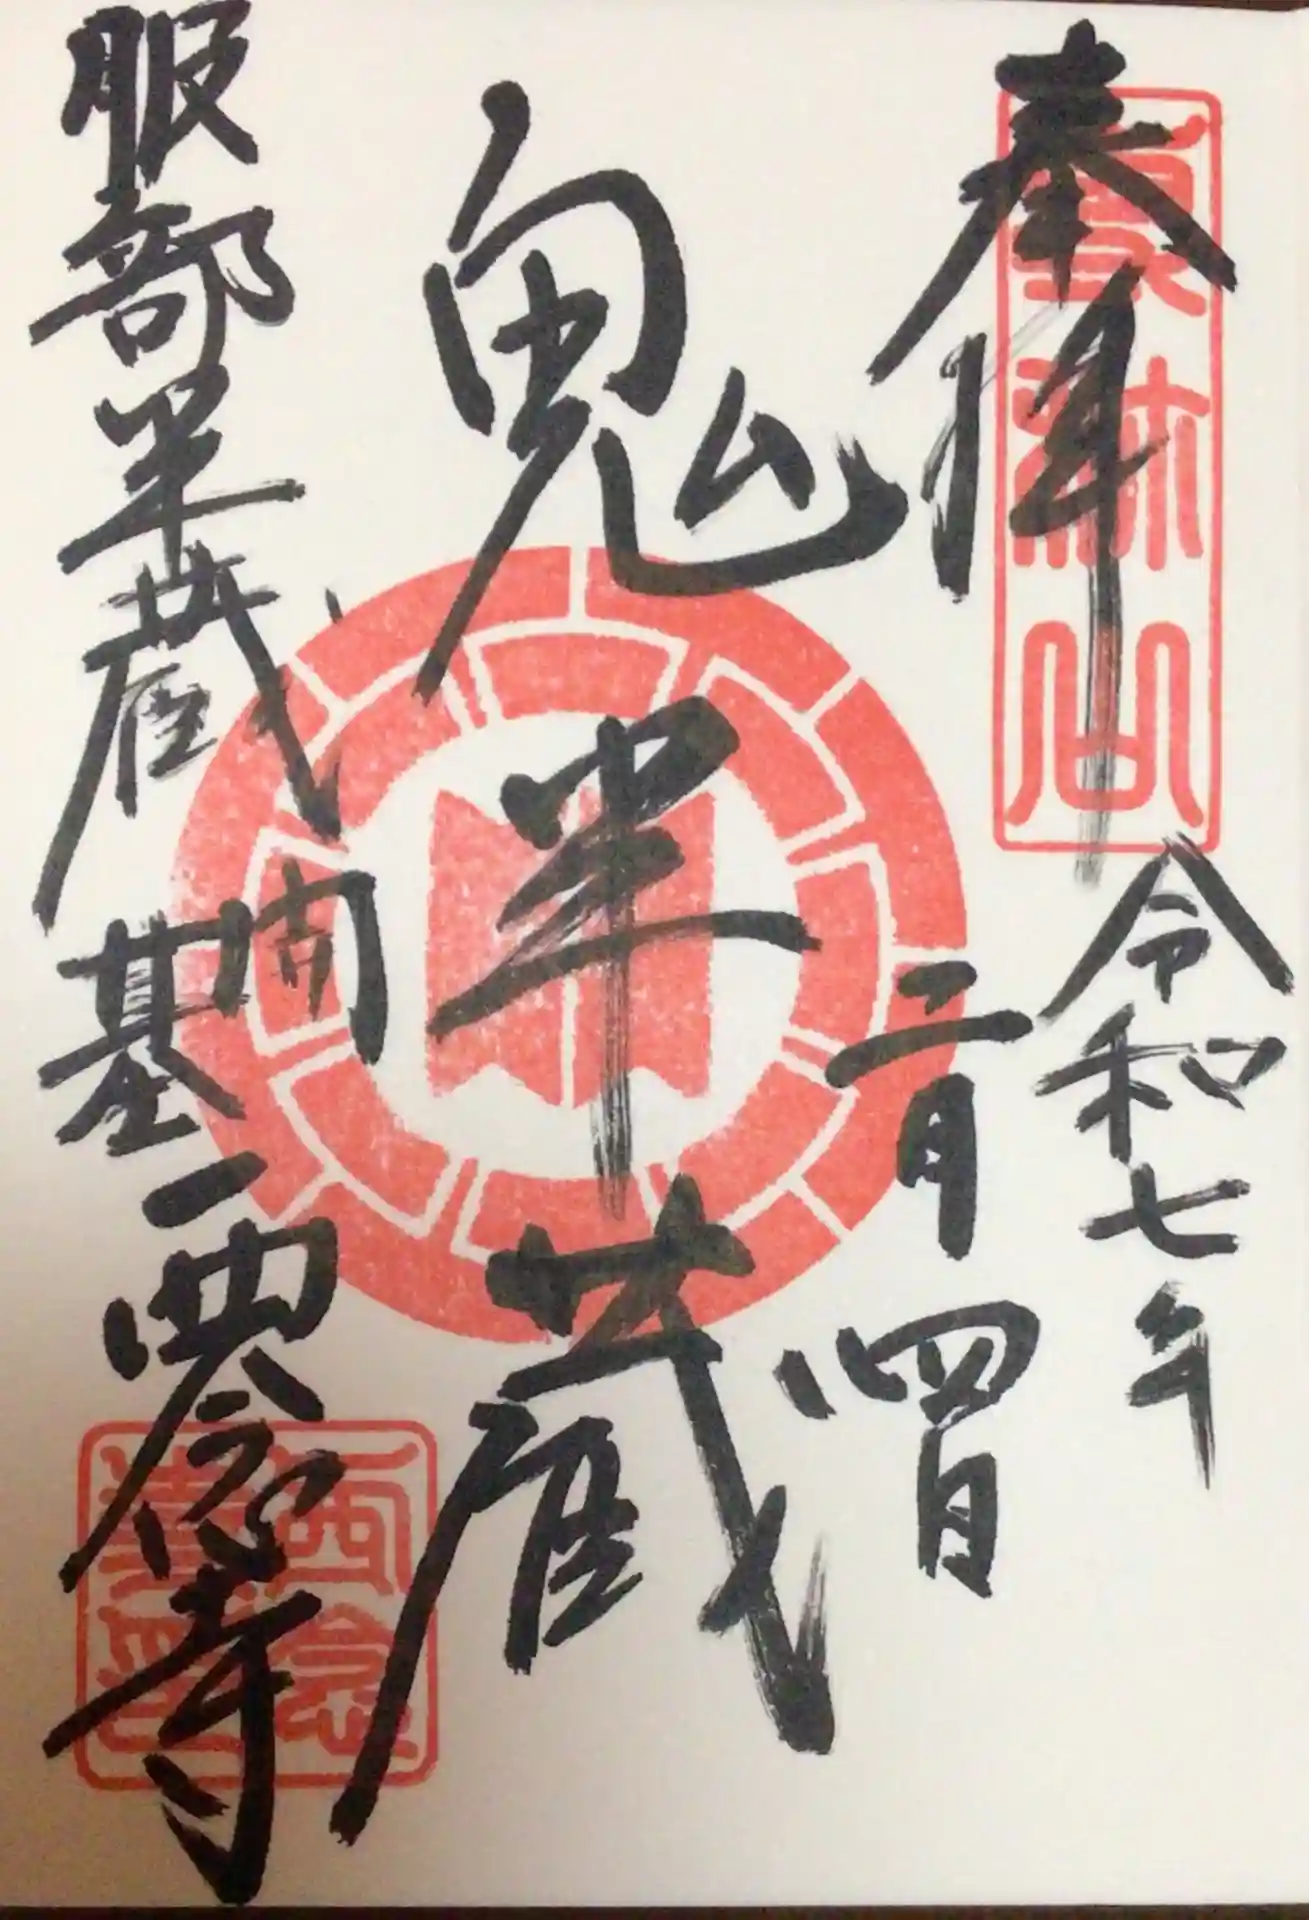 奉拝
令和七年
二月四日
鬼半蔵
服部半蔵開基
西念寺
西念
寺印